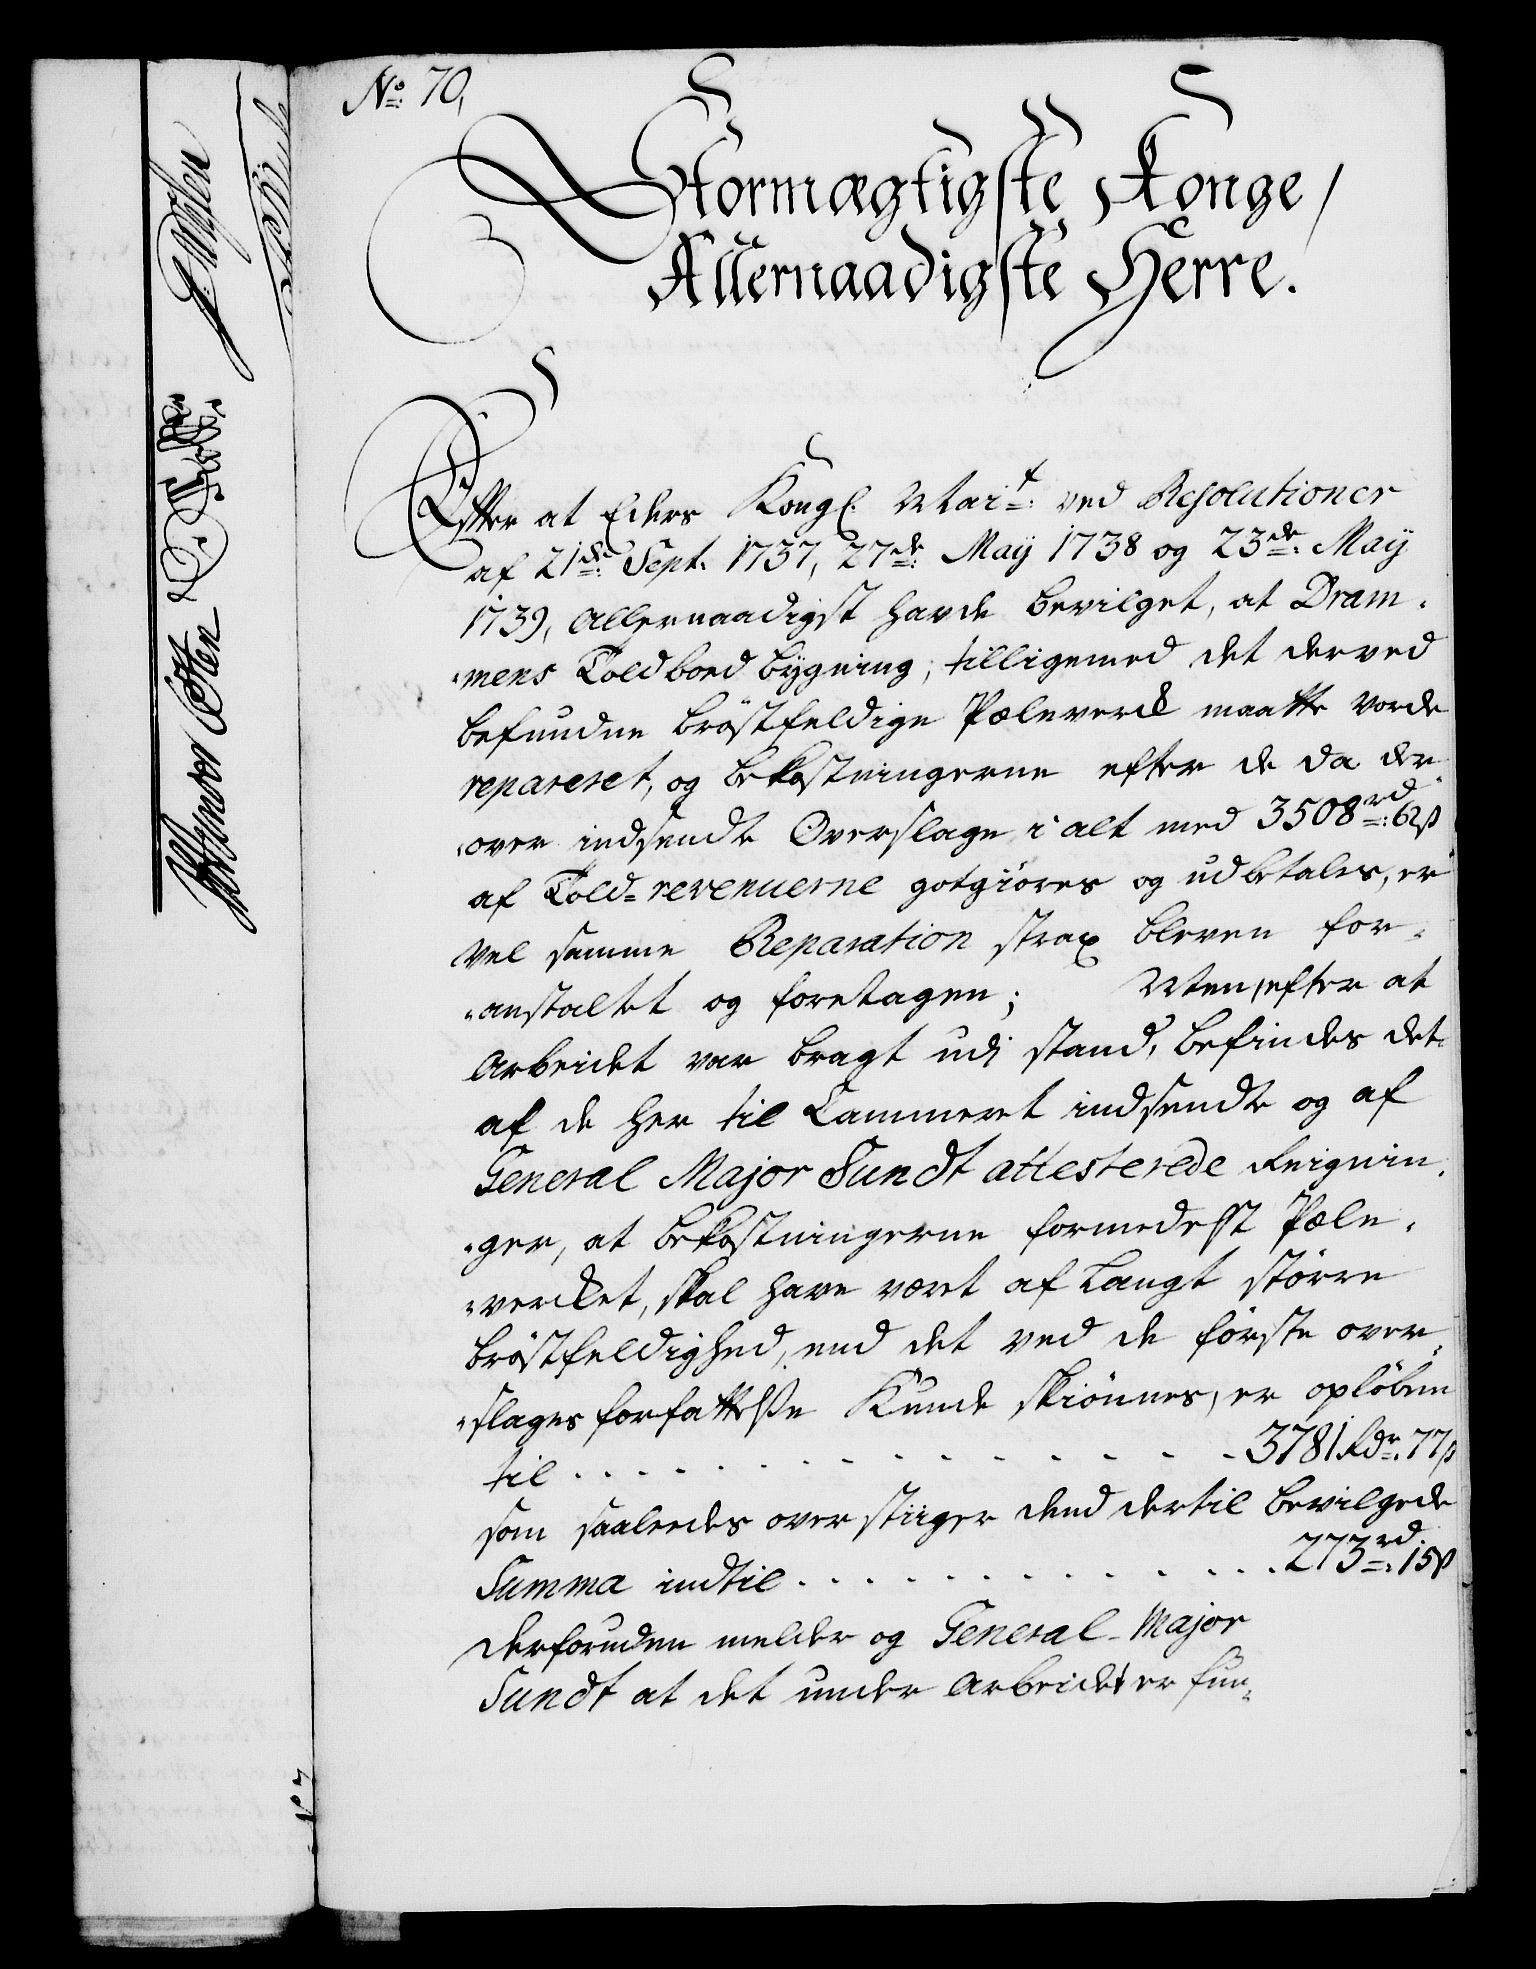 No. 70,
Stormægtigste Konge /
Allernaadigste Herre.
Efter at Eders Kongl. Mait: ved Resolutioner
af 21de Sept. 1737, 27de May 1738 og 23de May
1739, allernaadigst havde bevilget, at Dram-
mens Toldboed bÿgning, tilligemed det derved
befundne bröstfeldige Pæleverck maatte vorde
repareret, og bekostningerne efter de da der-
over indsendte Overslage i alt med 3508 rd: 62 ß
af Told-revenuerne gotgiöres og udbetales, er
vel samme Reparation strax bleven for-
anstaltet og foretagen; Men, efter at
arbeidet var bragt udi stand, befindes det
af de her til Cammeret indsendte og af
General Major Sundt attesterede Reignin-
ger, at bekostningerne formedelst Pæle-
vercket, skal have været af langt större
bröstfeldighed, end det ved de förste over-
slages forfattelse kunde skiönnes, er oplöben
til - - - - - - - - - - - 3781 Rdr. 77 ß
som saaledes overstiiger dend dertil bevilgede
Summa indtil - - - - - - - - - - 273 rd: 15 ß
derforuden melder og General-Major
Sundt at det under arbeidet er fun-